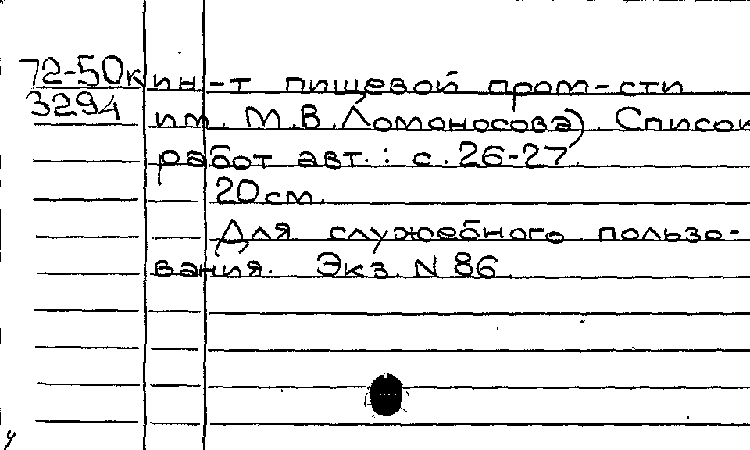 72-50к ин-т пищевой пром-сти
3294 им. М.В. Ломоносова) Список
работ авт.: с. 26-27.
20 см.
Для служебного пользо-
вания. Экз. N 86.